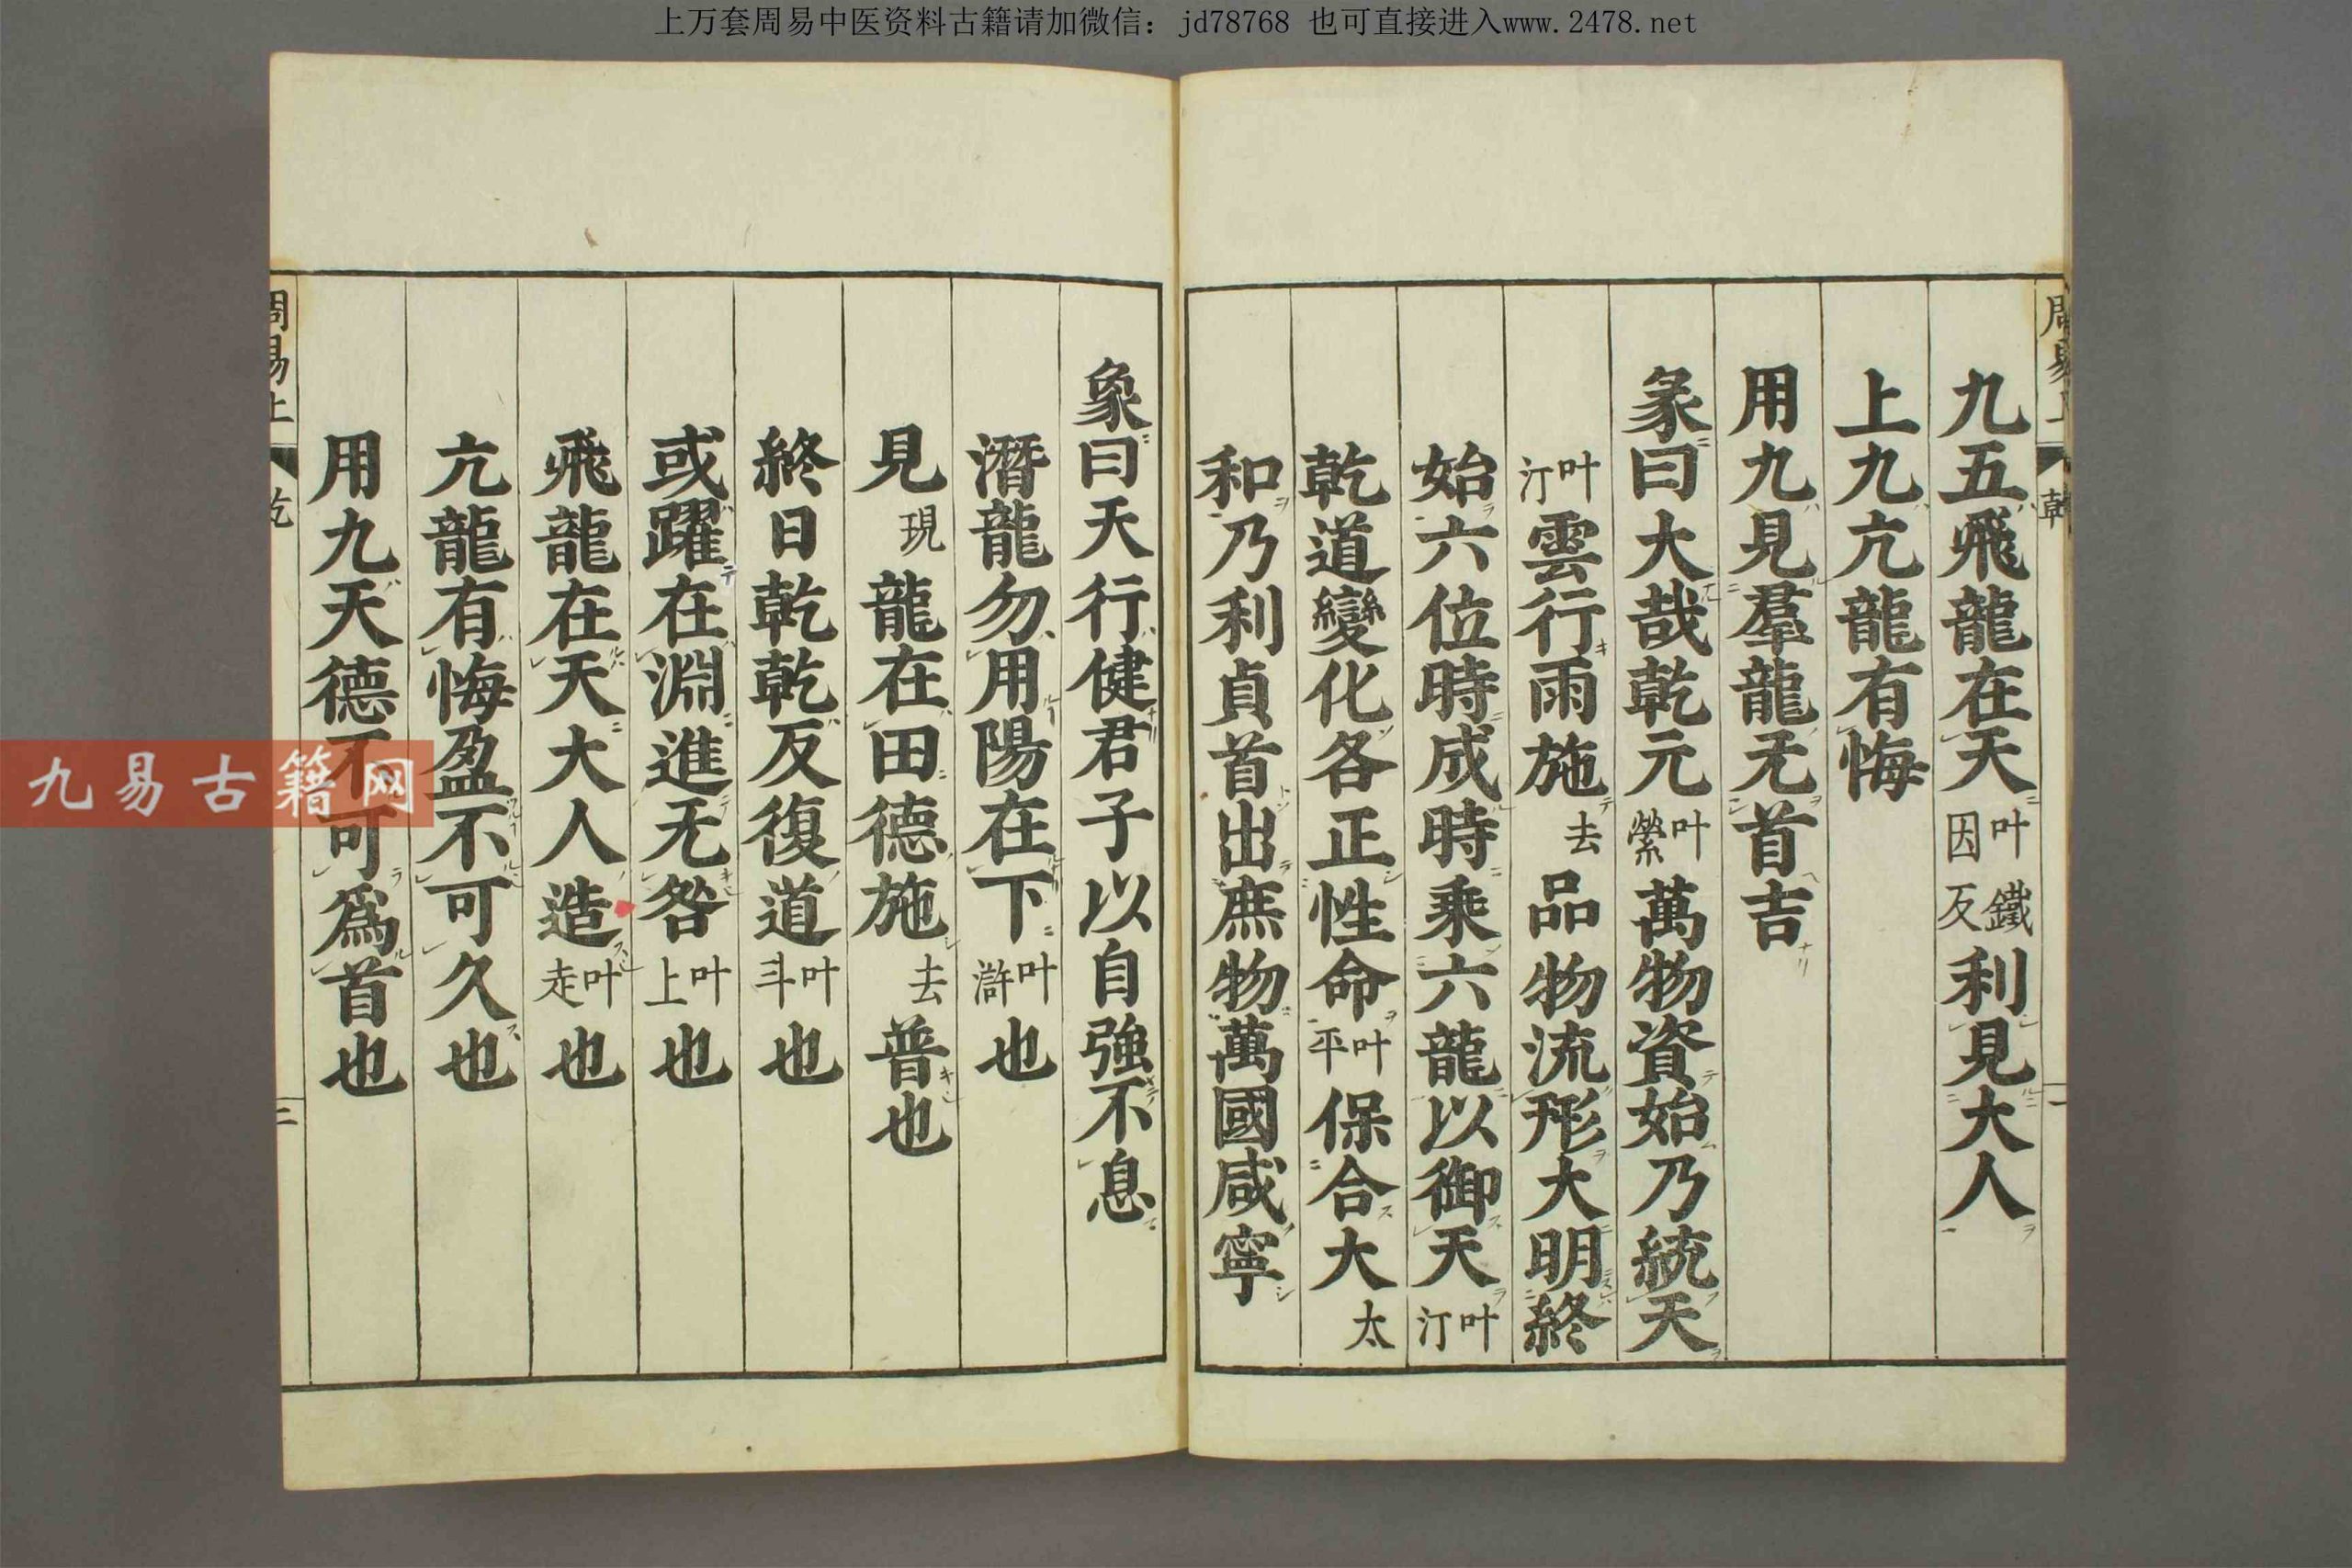 上万套周易中医资料古籍请加微信：jd78768 也可直接进入www.2478.net
周易上 乾 二
九五飛龍在天叶鐵因反利見大人
上九亢龍有悔
用九見羣龍无首吉
彖曰大哉乾元叶縈萬物資始乃統天
叶汀雲行雨施去品物流形大明終
始六位時成時乘六龍以御天叶汀
乾道變化各正性命叶平保合大太
和乃利貞首出庶物萬國咸寧
象曰天行健君子以自強不息
潛龍勿用陽在下叶滸也
見現龍在田德施去普也
終日乾乾反復道叶斗也
或躍在淵進无咎叶上也
飛龍在天大人造叶走也
亢龍有悔盈不可久也
用九天德不可爲首也
周易上 乾 二
九易古籍网